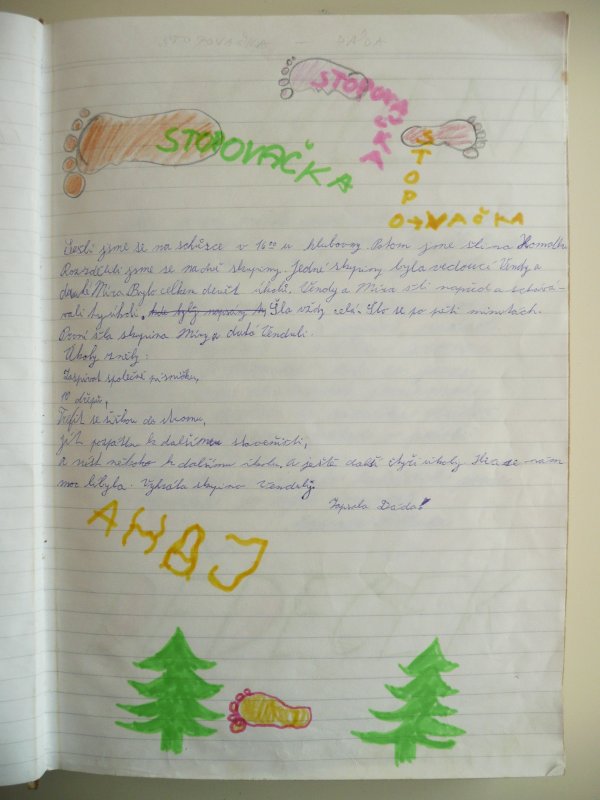 STOPOVAČKA - DÁDA
STOPOVAČKA
STOPOVAČKA
STOPOVAČKA
Sešli jsme se na schůzce v 16⁰⁰ u klubovny. Potom jsme šli na Homolku
Rozdělili jsme se na dvě skupiny. Jedné skupiny byla vedoucí Vendy a
druhé Míra. Bylo celkem devět úkolů. Vendy a Míra šli napřed a schová-
vali ty úkoly. Šla vždy celá. Šlo se po pěti minutách.
První šla skupina Míry a druhá Venduli.
Úkoly zněly:
Zazpívat společně písničku,
10 dřepů,
Trefit se šiškou do stromu,
Jít pozpátku k dalšímu stanovišti,
a nést někoho k dalšímu úkolu. A ještě další čtyři úkoly. Hra se nám
moc líbyla. Vyhrála skupina Venduly.
Zapsala Dáda!
AHOJ